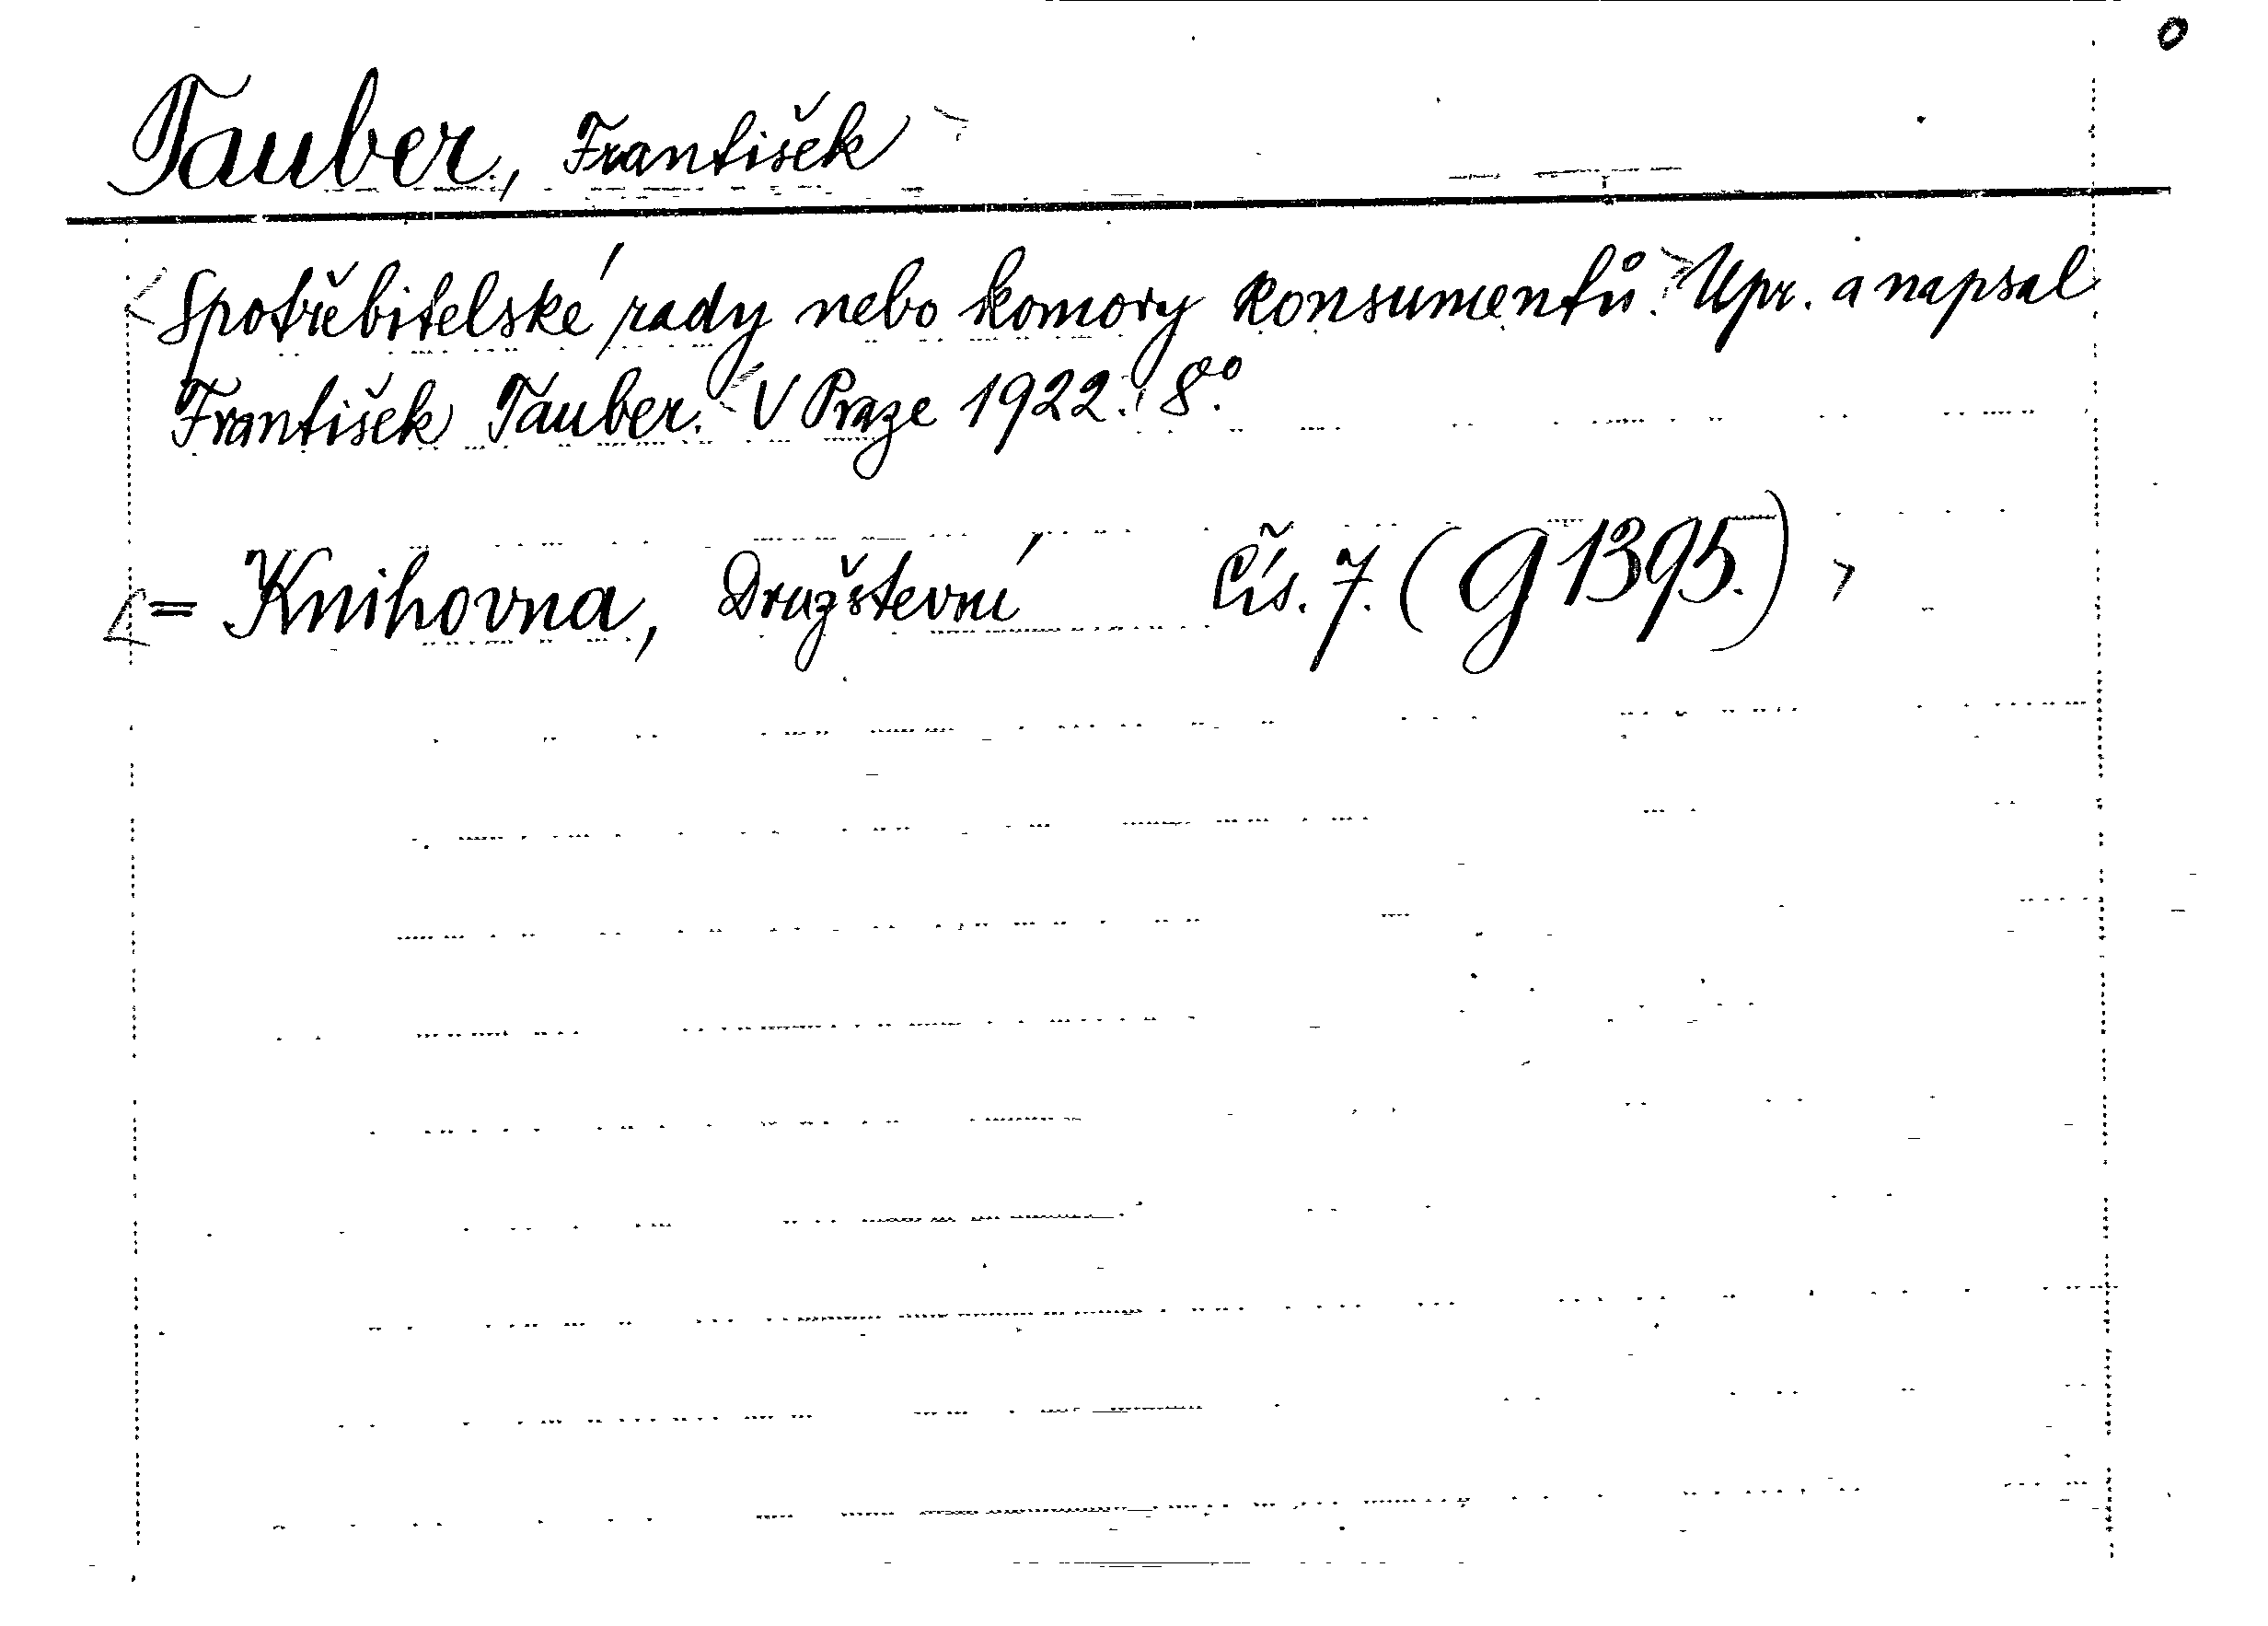 Tauber, František
Spotřebitelské rady nebo komory konsumentů. Upr. a napsal
František Tauber. V Praze 1922. 8°.
= Knihovna, Družstevní čís. 7. (G 1395.)